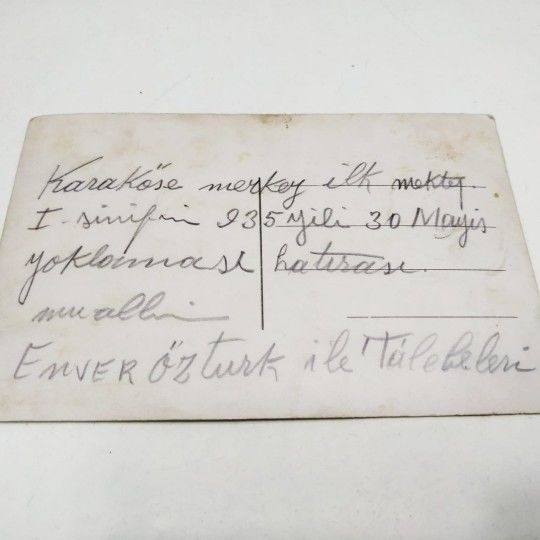 Karaköse merkez ilk mektep.
I. sinifin 935 yili 30 Mayis
yoklaması hatırası.
muallim
ENVER ÖZturk ile Talebeleri